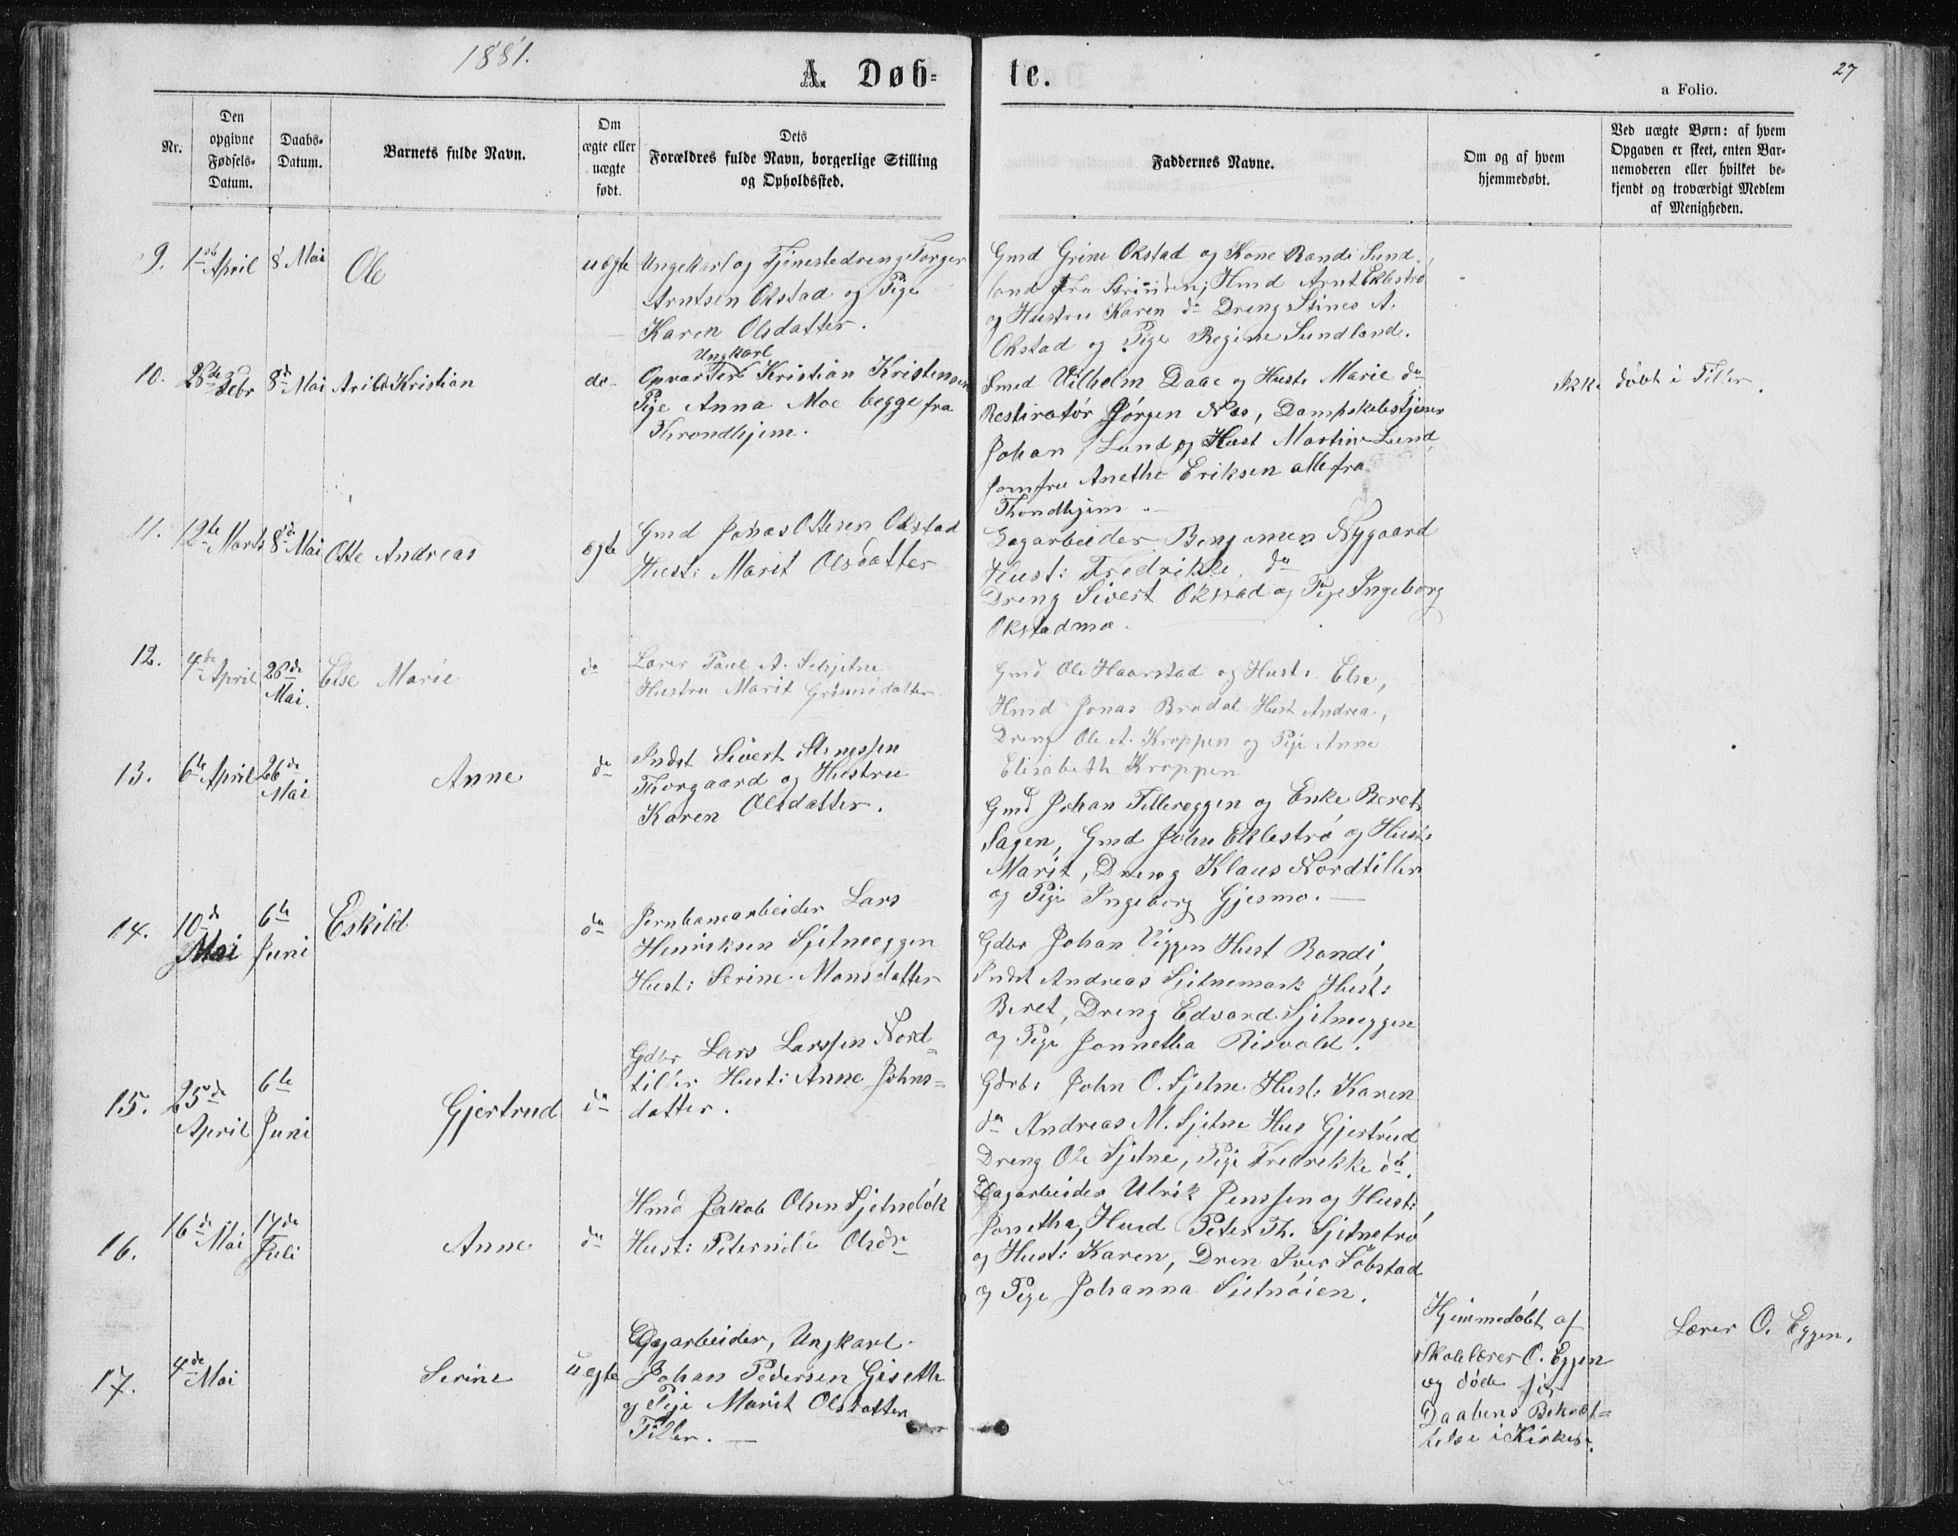 1881.
A. Døb-
te.
27
a Folio.
Nr.
Den opgivne Fødsels-Datum.
Daabs-Datum.
Barnets fulde Navn.
Om ægte eller uægte født.
Dets
Forældres fulde Navn, borgerlige Stilling
og Opholdssted.
Faddernes Navne.
Om og af hvem
hjemmedøbt.
Ved uægte Børn: af hvem
Opgaven er skeet, enten Bar-
nemoderen eller hvilket be-
kjendt og troværdigt Medlem
af Menigheden.
9. 1ste April 8 Mai Ole uægte
Ungekarl og Tjenestedreng Torger
Arntsen Okstad og Pige
Karen Olsdatter.
Gmd Grim Okstad og Kone Randi Sund-
land fra Strinden, Hmd Arnt Eklestrø
og Hustru Karen do Dreng Stines A.
Okstad og Pige Regine Sundland.
10. 28de Febr 8d Mai Arild Kristian do
Ungkarl
Opvarter Kristian Kristensen
Pige Anna Moe begge fra
Throndhjem.
Smed Vilhelm Daae og Hust: Marie do
Restiratør Jørgen Næs, Dampskibstjener
Johan Lund og Hust Martine Lund
Jomfru Anethe Eriksen alle fra
Thondhjem
Ikke døbt i Tiller.
11. 12te Marts 8d Mai Otte Andreas ægte
Gmd Johas Ottesen Okstad
Hust: Marit Olsdatter
Dagarbeider Benjamen Nygaard
Hust: Fredrikke do
Dreng Sivert Okstad og Pige Ingeborg
Okstadmo.
12. 4de April 26de Mai. Else Marie do
Lærer Paul A. Schjetne
Hustru Marit Grimsdatter
Gmd Ole Haarstad og Hust: Else,
Hmd Jonas Bradal Hust Andrea,
Dreng Ole A. Kroppen og Pige Anne
Elisabeth Kroppen
13. 6te April 26de Mai Anne do
Indst Sivert Stenessen
Thorgaard og Hustru
Karen Olsdatter.
Gmd Johan Tillereggen og Enke Beret
Sagen, Gmd John Eklestrø og Hust:
Marit, Dreng Klaus Nordtiller
og Pige Ingeborg Gjesmo.
14. 10d Mai 6te Juni Eskild do
Jernbanearbeider Lars
Henriksen Sjetneeggen
Hust: Serine Monsdatter
Gdbr Johan Viggen Hust Randi,
Indst Andreas Sjetnemark Hust:
Beret, Dreng Edvard Sjetneeggen
og Pige Jonnetha Risvold.
15. 25de April 6te Juni Gjertrud do
Gdbr Lars Larssen Nord-
tiller Hust: Anne Johns-
datter.
Gdbr: John O. Sjetne Hust: Karen
do Andreas M. Sjetne Hus Gjertrud
Dreng Ole Sjetne, Pige Fredrekke do.
16. 16de Mai 17de Juli Anne do
Hmd Jakob Olsen Sjetneløk
Hust: Peternille Olsdr
Dagarbeider Ulrik Jenssen og Hust:
Jonetha, Hmd Peter Th. Sjetnetrø
og Hust: Karen, Dren Iver Føbstad
og Pige Johanna Sjetnøien.
17. 4de Mai Serine uægte
Dagarbeider, Ungkarl
Johan Pedersen Giseth
og Pige Marit Olsdatter
Tiller.
Hjemmedøbt af
Skolelærer O. Eggen
og døde før
Daabens Bekræft-
telse i Kirken.
Lærer O. Eggen.